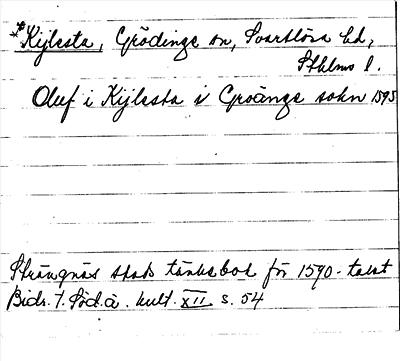 *Kijlesta, Grödinge sn, Svartlösa hd,
Sthlms l.
Oluf i Kijlesta i Groänge sokn 1595
Strängnäs stads tänkebok för 1590-talet
Bidr. t. Söd.ä. kult. XII s. 54